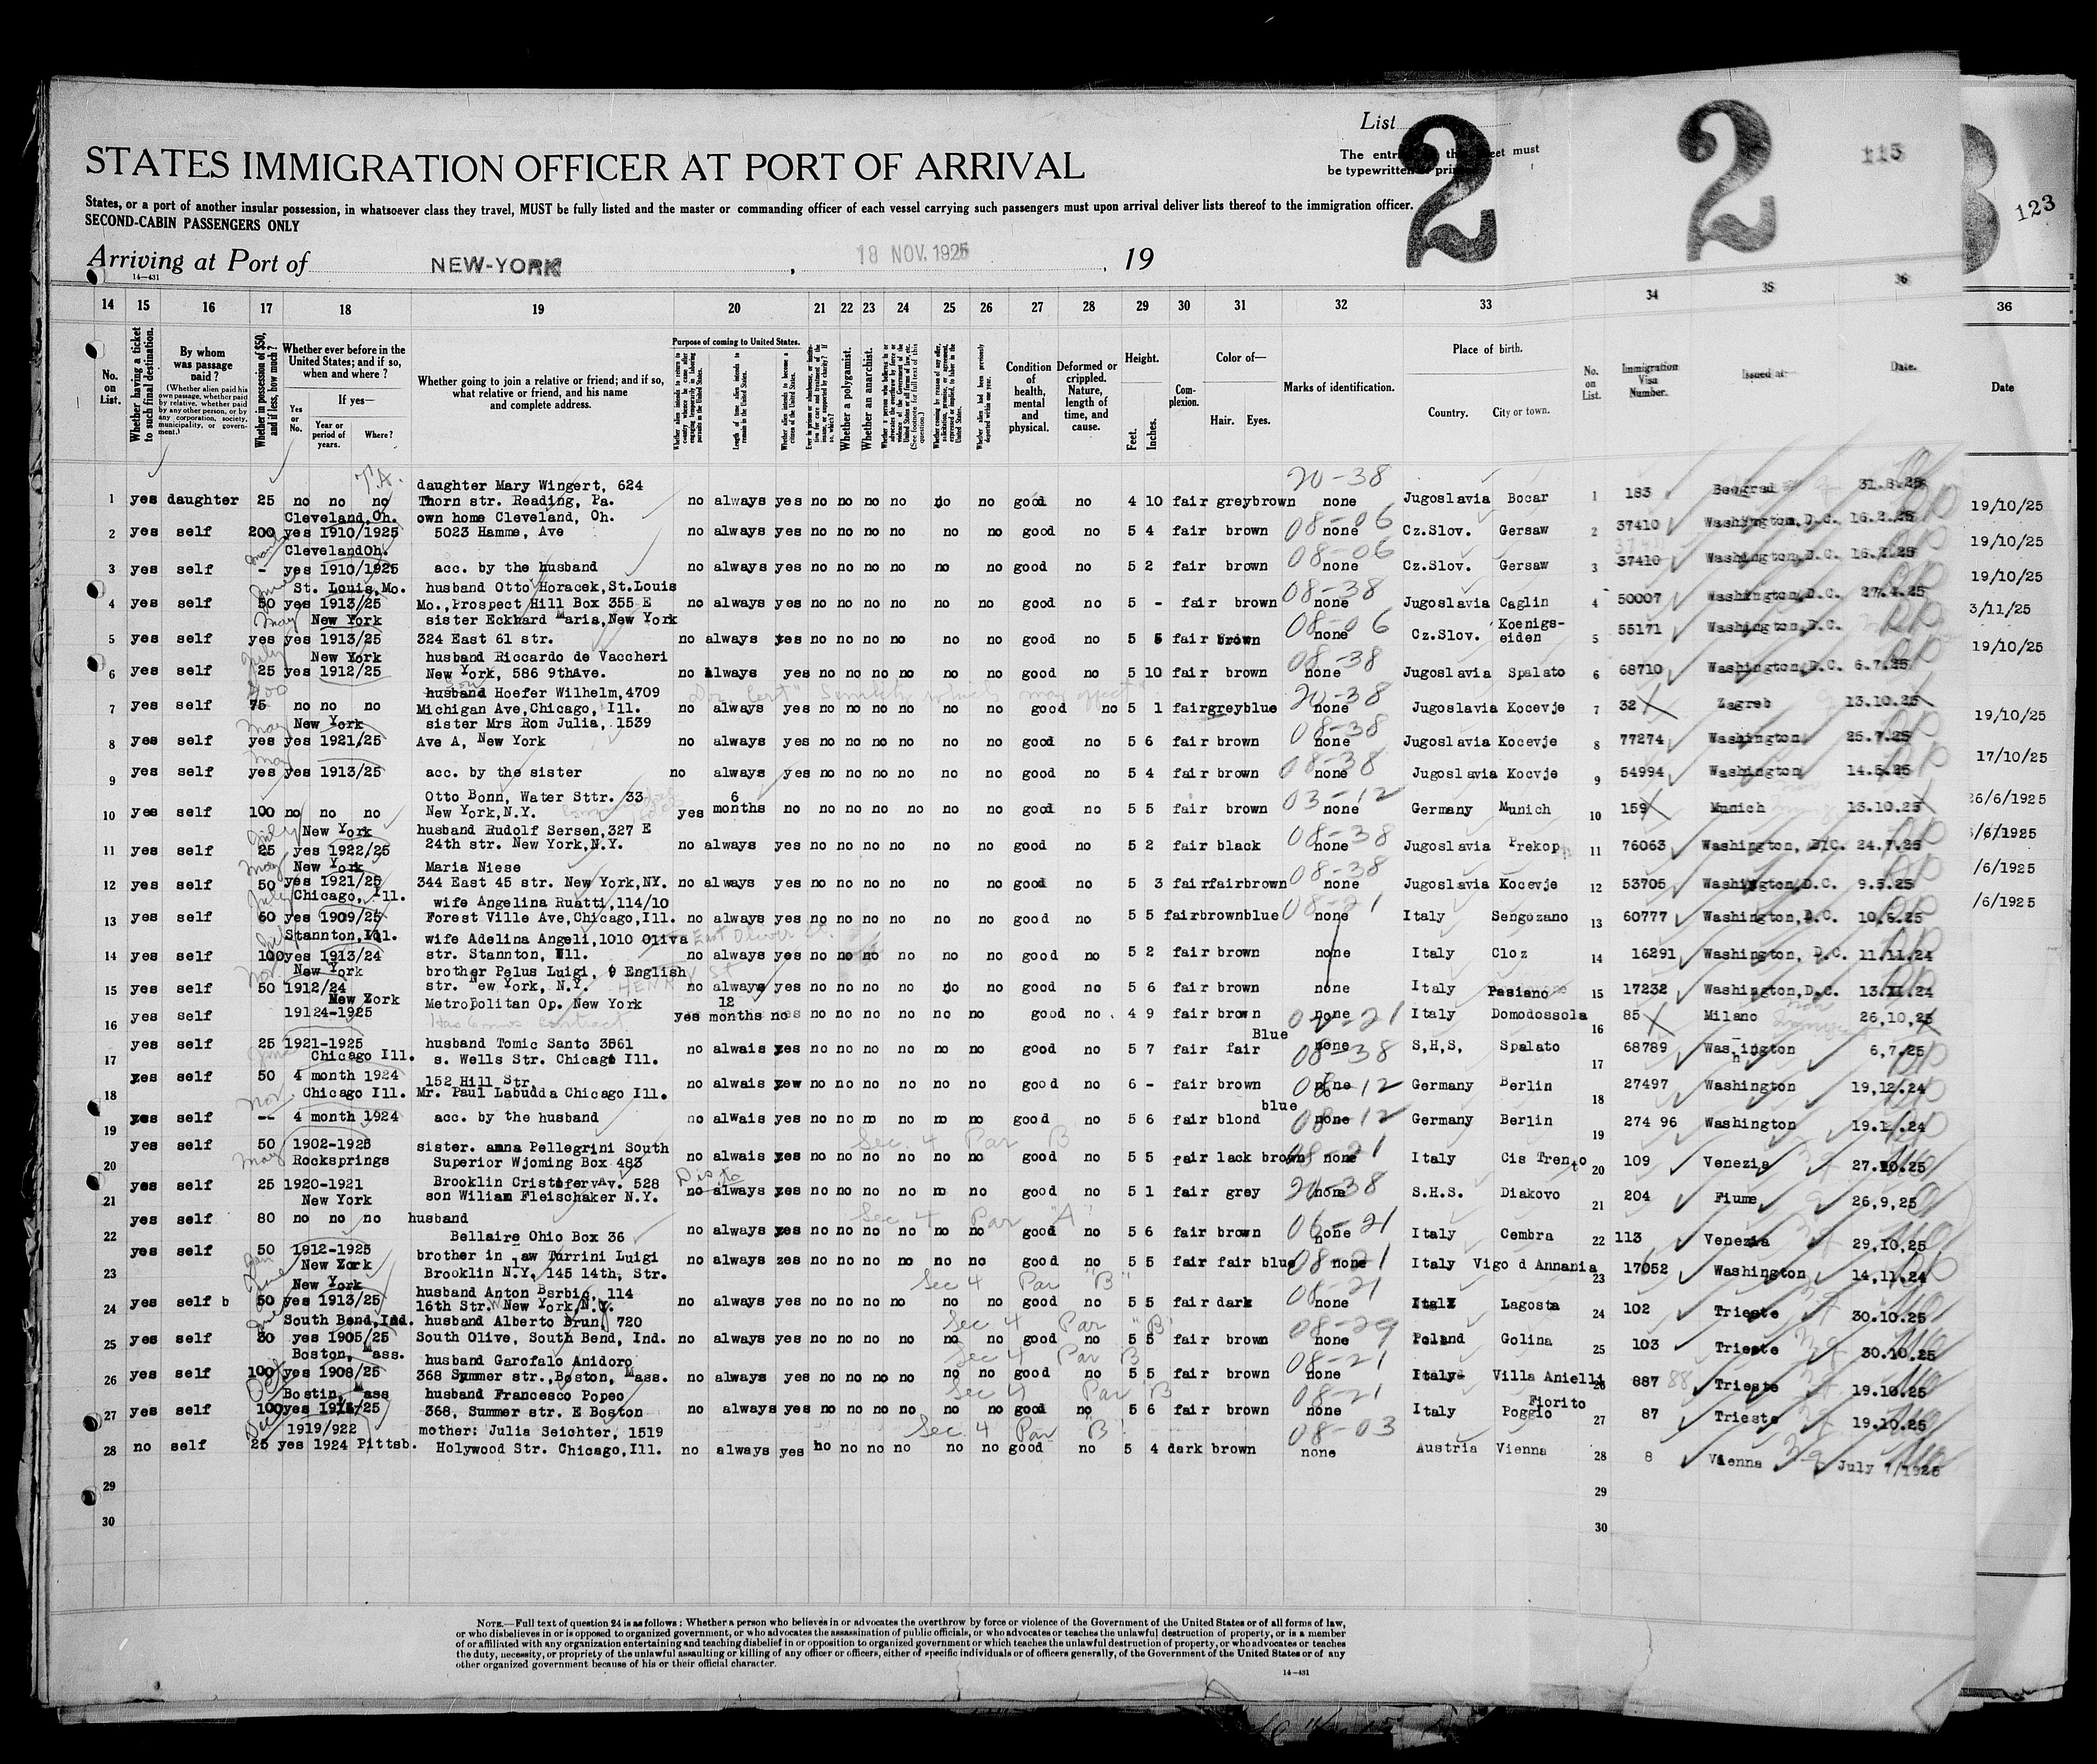 List
2
2
115
123
The entries on this sheet must
be typewritten or printed.
STATES IMMIGRATION OFFICER AT PORT OF ARRIVAL
States, or a port of another insular possession, in whatsoever class they travel, MUST be fully listed and the master or commanding officer of each vessel carrying such passengers must upon arrival deliver lists thereof to the immigration officer.
SECOND-CABIN PASSENGERS ONLY
Arriving at Port of NEW-YORK , 18 NOV. 1925 , 19
14—431
14 15 16 17 18 19 20 21 22 23 24 25 26 27 28 29 30 31 32 33 34 35 36 36
No. on List.
Whether having a ticket to such final destination.
By whom was passage paid?
(Whether alien paid his own passage, whether paid by relative, whether paid by any other person, or by any corporation, society, municipality, or government.)
Whether in possession of $50, and if less, how much?
Whether ever before in the United States; and if so, when and where?
If yes—
Yes or No.
Year or period of years.
Where?
Whether going to join a relative or friend; and if so, what relative or friend, and his name and complete address.
Purpose of coming to United States.
Length of time alien intends to remain in the United States.
Whether alien intends to become a citizen of the United States.
Whether a polygamist.
Whether an anarchist.
Condition of health, mental and physical.
Deformed or crippled. Nature, length of time, and cause.
Height.
Feet. Inches.
Complexion.
Color of—
Hair. Eyes.
Marks of identification.
Place of birth.
Country. City or town.
No. on List.
Immigration Visa Number.
Issued at—
Date.
Date
T.A. daughter Mary Wingert, 624 20-38
1 yes daughter 25 no no no Thorn str. Reading, Pa. no always yes no no no no no no good 4 10 fair grey brown none Jugoslavia Bocar 1 183 Beograd 31.8.25
Cleveland, Oh. own home Cleveland, Oh. 08-06 19/10/25
2 yes self 200 yes 1910/1925 5023 Hamme, Ave no always yes no no no no no no good no 5 4 fair brown none Cz.Slov. Gersaw 2 37410 Washington, D.C. 16.2.25
Cleveland Oh. 08-06 19/10/25
3 yes self - yes 1910/1925 acc. by the husband no always yes no no no no no no good no 5 2 fair brown none Cz.Slov. Gersaw 3 37410 Washington, D.C. 16.2.25
St. Louis, Mo. husband Otto Horacek, St.Louis 08-38 19/10/25
4 yes self 50 yes 1913/25 Mo., Prospect Hill Box 355 E no always yes no no no no no no good no 5 - fair brown none Jugoslavia Caglin 4 50007 Washington, D.C. 27.4.25
May New York sister Eckhard Maria, New York 08-06 Koenigs- 3/11/25
5 yes self yes yes 1913/25 324 East 61 str. no always yes no no no no no no good no 5 5 fair brown none Cz.Slov. eiden 5 55171 Washington, D.C.
July New York husband Riccardo de Vaccheri 08-38 19/10/25
6 yes self 25 yes 1912/25 New York, 586 9thAve. no always yes no no no no no no good no 5 10 fair brown none Jugoslavia Spalato 6 68710 Washington, D.C. 6.7.25
200 son husband Hoefer Wilhelm, 4709 20-38
7 yes self 75 no no no Michigan Ave, Chicago, Ill. no always yes no no no no no no good no 5 1 fair grey blue none Jugoslavia Kocevje 7 32 Zagreb 13.10.25
May New York sister Mrs Rom Julia, 1539 08-38 19/10/25
8 yes self yes yes 1921/25 Ave A, New York no always yes no no no no no no good no 5 6 fair brown none Jugoslavia Kocevje 8 77274 Washington 25.7.25
May 08-38 17/10/25
9 yes self yes yes 1913/25 acc. by the sister no always yes no no no no no no good no 5 4 fair brown none Jugoslavia Kocvje 9 54994 Washington 14.5.25
Otto Bonn, Water Sttr. 33 6 03-12 26/6/1925
10 yes self 100 no no no New York, N.Y. yes months no no no no no no no good no 5 5 fair brown none Germany Munich 10 159 Munich 13.10.25
July New York husband Rudolf Sersen, 327 E 08-38 /6/1925
11 yes self 25 yes 1922/25 24th str. New York, N.Y. no always yes no no no no no no good no 5 2 fair black none Jugoslavia Prekop 11 76063 Washington, D.C. 24.7.25
May New York Maria Niese 08-38 /6/1925
12 yes self 50 yes 1921/25 344 East 45 str. New York, NY. no always yes no no no no no no good no 5 3 fair fair brown none Jugoslavia Kocevje 12 53705 Washington, D.C. 9.5.25
July Chicago, Ill. wife Angelina Ruatti, 114/10 08-21 /6/1925
13 yes self 60 yes 1909/25 Forest Ville Ave, Chicago, Ill. no always yes no no no no no no good no 5 5 fair brown blue none Italy Sengozano 13 60777 Washington, D.C. 10.6.25
Stannton, Ill. wife Adelina Angeli, 1010 Oliva East Oliver St.
14 yes self 100 yes 1913/24 str. Stannton, Ill. no always yes no no no no no no good no 5 2 fair brown none Italy Cloz 14 16291 Washington, D.C. 11.11.24
Nov. New York brother Pelus Luigi, 9 English HENRY St
15 yes self 50 1912/24 str. New York, N.Y. no always yes no no no no no no good no 5 6 fair brown none Italy Pasiano 15 17232 Washington, D.C. 13.11.24
New York Metropolitan Op. New York 12
16 yes self 19124-1925 Has 6 mos contract. yes months no no no no no no no good no 4 9 fair brown none Italy Domodossola 16 85 Milano 26,10,25
Blue
17 yes self 25 1921-1925 husband Tomic Santo 3561 no alwais yes no no no no no no good no 5 7 fair fair none S,H,S, Spalato 17 68789 Washington 6,7.25
Chicago Ill. s. Wells Str. Chicago Ill. 08-38
18 yes self 50 4 month 1924 152 Hill Str. no alwais yew no no no no no no good no 6 - fair brown none Germany Berlin 18 27497 Washington 19,12.24
Nov. Chicago Ill. Mr. Paul Labudda Chicago Ill. blue
19 yes self -- 4 month 1924 acc. by the husband no alwais yes no no no no no no good no 5 6 fair blond 08-12 none Germany Berlin 19 274 96 Washington 19.12.24
Sec. 4 Par B
20 yes self 50 1902-1925 sister. anna Pellegrini South no alwais yes no no no no no no good no 5 5 fair lack brown none Italy Cis Trento 20 109 Venezia 27.10.25
May Rocksprings Superior Wjoming Box 483 08-21
21 yes self 25 1920-1921 Brooklin Cristofer v Av. 528 no always yes no no no no no no good no 5 1 fair grey none S.H.S. Diakovo 21 204 Fiume 26,9,25
New York son Wiliam Fleischaker N.Y.
Sec. 4 Par "A"
22 yes self 80 no no no husband no always yes no no no no no no good no 5 6 fair brown none Italy Cembra 22 113 Venezia 29,10,25
Bellaire Ohio Box 36
23 yes self 50 1912-1925 brother in law Turrini Luigi no always zes no no no no no no good no 5 5 fair fair blue none Italy Vigo d Annania 23 17052 Washington 14,11.24
New Zork Brooklin N.Y. 145 14th, Str. 08-21
New York husband Anton Berbic, 114 Sec 4 Par "B" 08-21
24 yes self b 50 yes 1913/25 16th Str. New York, N.Y. no always yes no no no no no no good no 5 5 fair dark none Italy Lagosta 24 102 Trieste 30.10.25
South Bend, Ind. husband Alberto Brun, 720 Sec 4 Par "B" 08-29
25 yes self 30 yes 1905/25 South Olive, South Bend, Ind. no always yes no no no no no no good no 5 5 fair brown none Poland Golina 25 103 Trieste 30.10.25
Boston, Mass. husband Garofalo Anidoro Sec 4 Par B 08-21
26 yes self 100 yes 1908/25 368 Summer str., Boston, Mass. no always yes no no no no no no good no 5 5 fair brown none Italy Villa Anielli 26 887 88 Trieste 19.10.25
Bostin, Mass husband Francesco Popeo Sec 4 Par "B 08-21 Fiorito
27 yes self 100 yes /25 368, Summer str. E Boston no always yes no no no no no no good no 5 6 fair brown none Italy Poggio 27 87 Trieste 19.10.25
1919/922 mother: Julia Seichter, 1519 Sec 4 Par "B" 08-03
28 no self 25 yes 1924 Pittsb. Holywood Str. Chicago, Ill. no always yes no no no no no no good no 5 4 dark brown none Austria Vienna 28 8 Vienna July 7/1925
29 29
30 30
NOTE.—Full text of question 24 is as follows: Whether a person who believes in or advocates the overthrow by force or violence of the Government of the United States or of all forms of law,
or who disbelieves in or is opposed to organized government, or who advocates the assassination of public officials, or who advocates or teaches the unlawful destruction of property, or is a member
of or affiliated with any organization entertaining and teaching disbelief in or opposition to organized government or which teaches the unlawful destruction of property, or who advocates or teaches
the duty, necessity, or propriety of the unlawful assaulting or killing of any officer or officers, either of specific individuals or of officers generally, of the Government of the United States or of any
other organized government because of his or their official character.
14—431